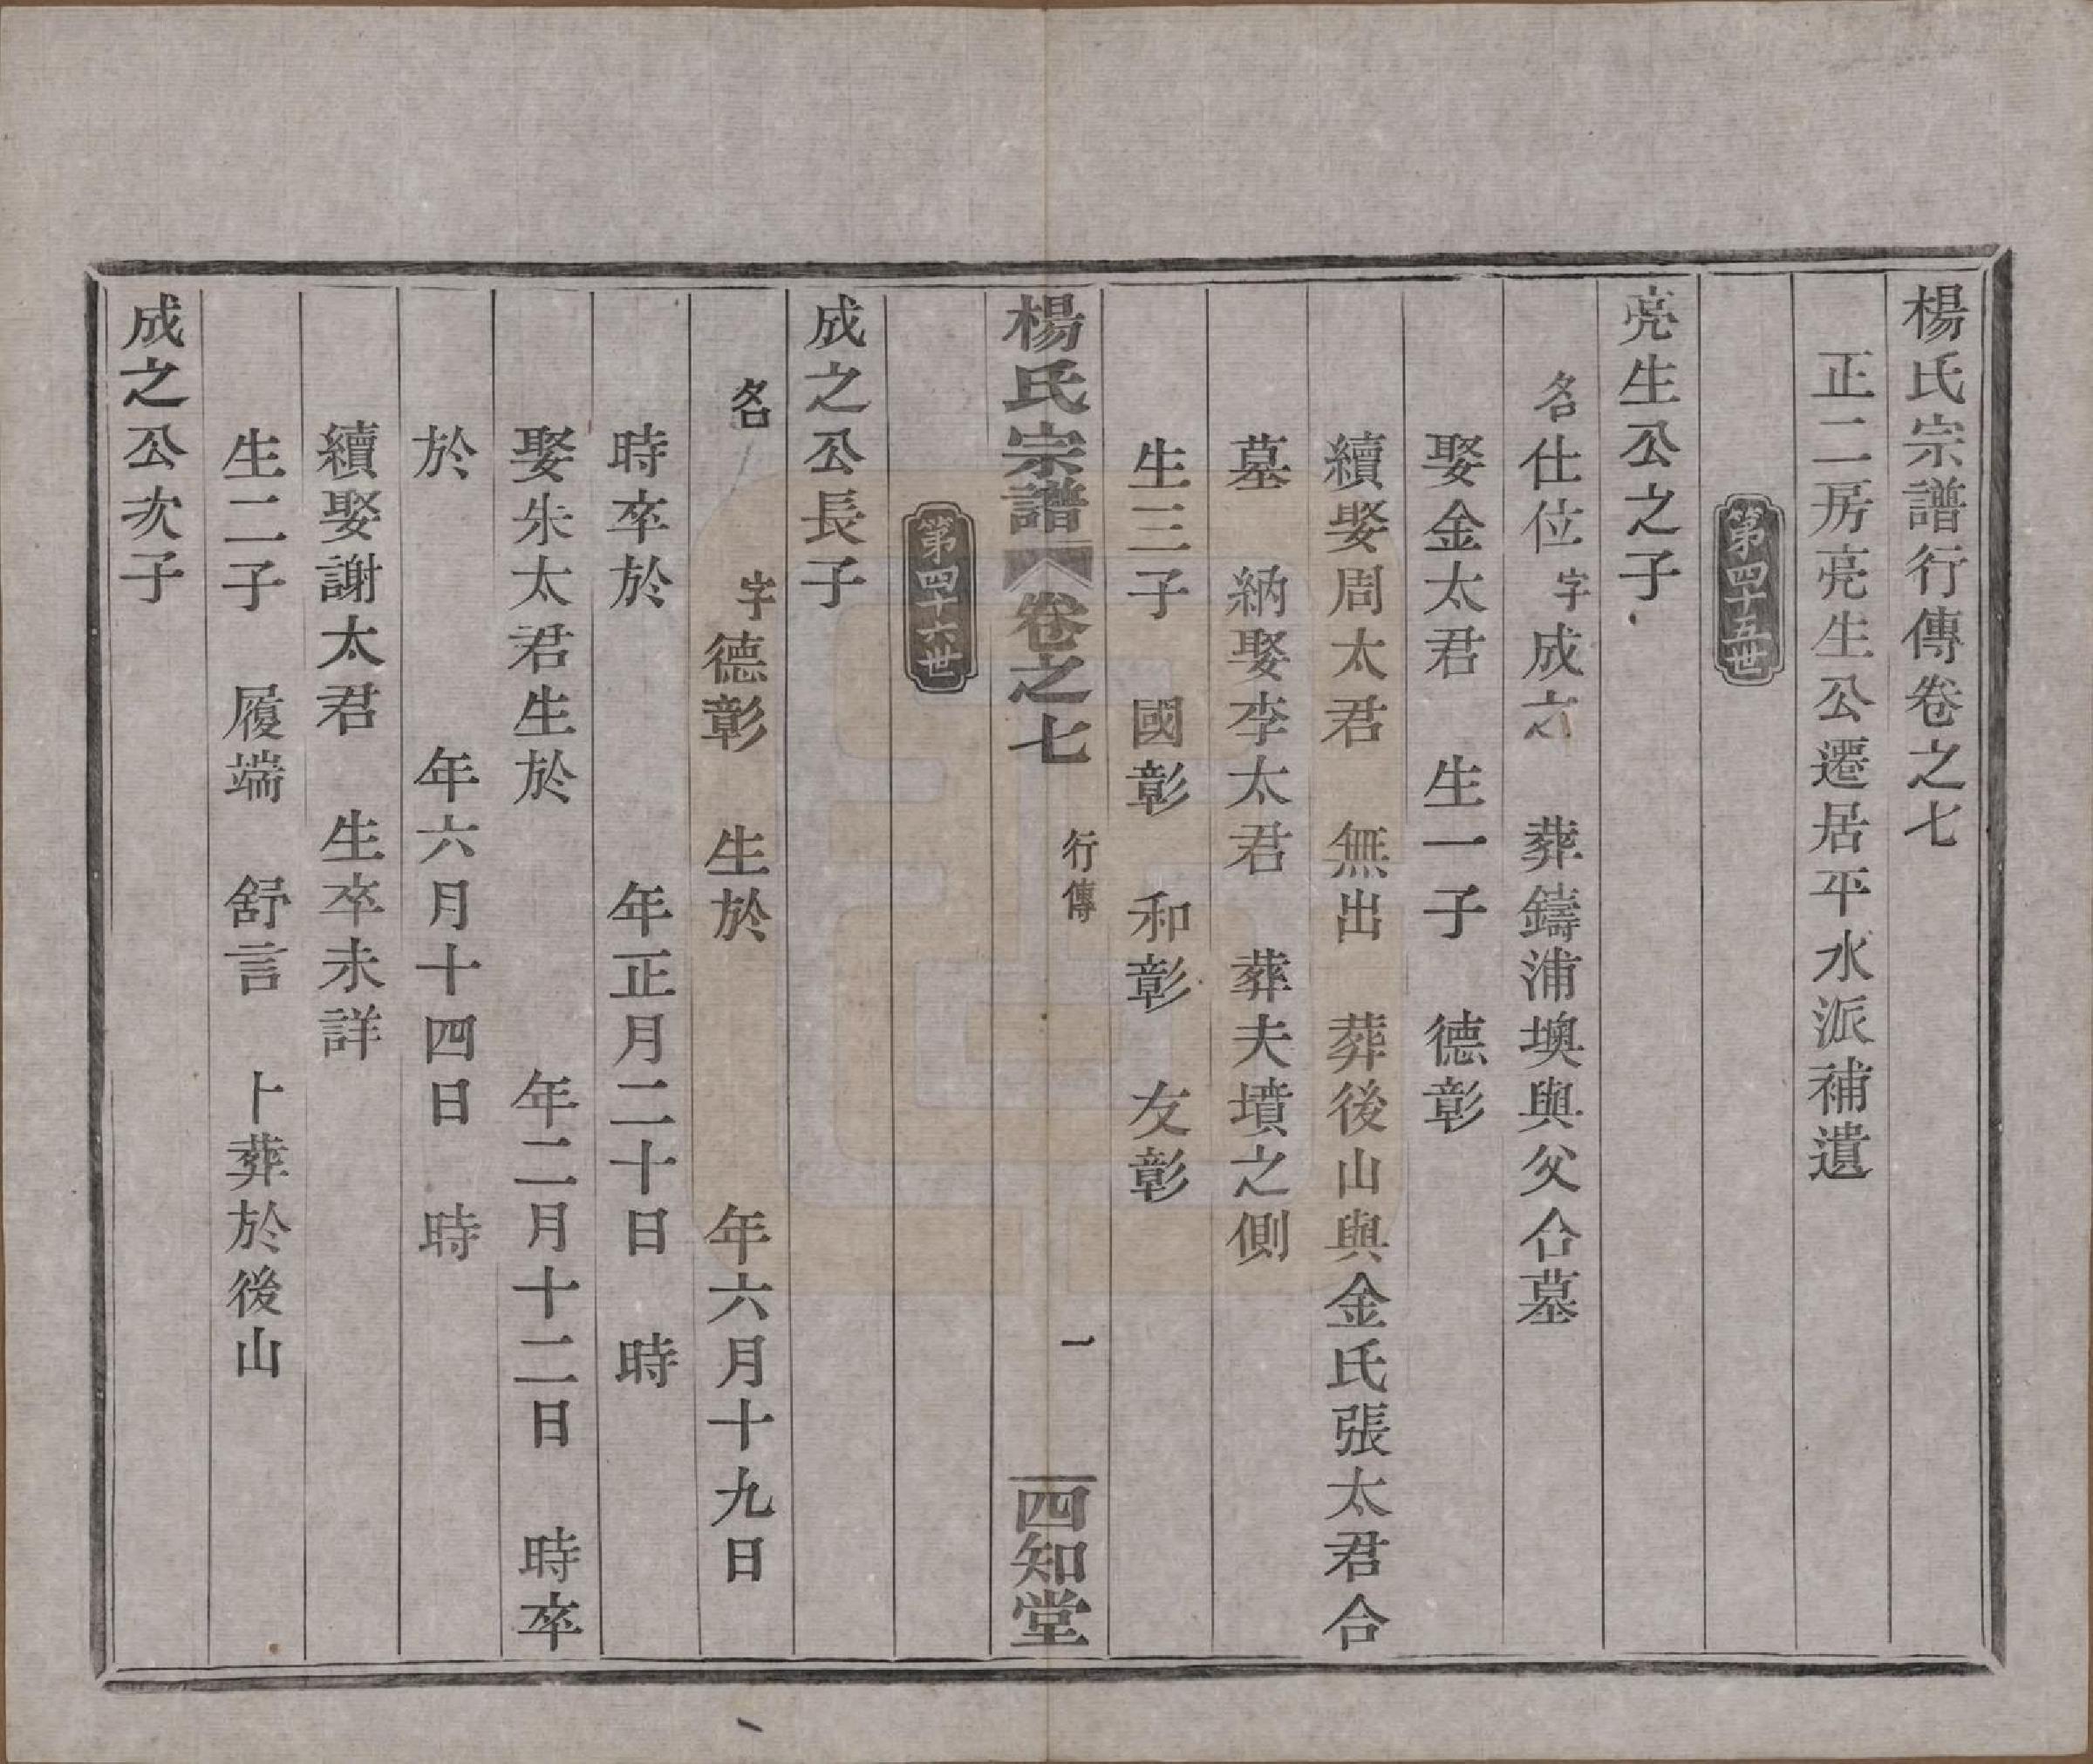 楊氏宗譜行傳卷之七
正二房亮生公遷居平水派補遺
第四十五世
亮生公之子
名仕位字成之　葬鑄浦墺與父合墓
娶金太君　生一子　德彰
續娶周太君　無出　葬後山與金氏張太君合
墓　納娶李太君　葬夫墳之側
生三子　國彰　和彰　友彰
楊氏宗譜　卷之七　行傳　一　四知堂
第四十六世
成之公長子
名　　字德彰　生於　　　　年六月十九日
時卒於　　　　年正月二十日　時
娶朱太君生於　　　　年二月十二日　時卒
於　　　　年六月十四日　時
續娶謝太君　生卒未詳
生二子　履端　舒言　卜葬於後山
成之公次子